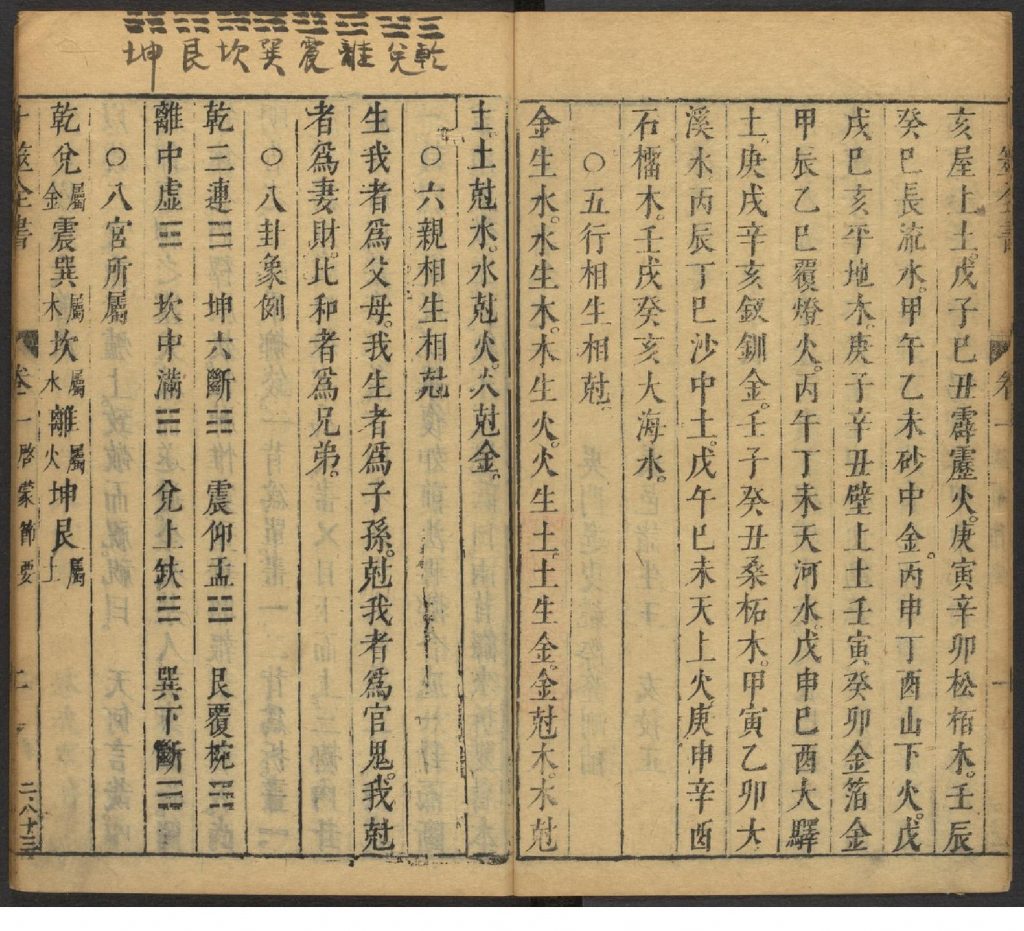 亥屋上土。戊子巳丑霹靂火。庚寅辛卯松栢木。壬辰
癸巳長流水。甲午乙未砂中金。丙申丁酉山下火。戊
戌巳亥平地木。庚子辛丑壁上土壬寅癸卯金箔金
甲辰乙巳覆燈火。丙午丁未天河水。戊申巳酉大驛
土。庚戌辛亥釵釧金。壬子癸丑桑柘木。甲寅乙卯大
溪水丙辰丁巳沙中土。戊午巳未天上火。庚申辛酉
石榴木。壬戌癸亥大海水。
○五行相生相尅
金生水。水生木。木生火。火生土。土生金。金尅木。木尅
土。土尅水。水尅火。火尅金。
○六親相生相尅
生我者爲父母。我生者爲子孫。尅我者爲官鬼。我尅
者爲妻財。比和者爲兄弟。
○八卦象例
乾三連☰ 坤六斷☷ 震仰盂☳ 艮覆椀☶
離中虛☲ 坎中滿☵ 兌上缺☱ 巽下斷☴
○八宮所屬
乾兌屬金震巽屬木坎屬水離屬火坤艮屬土
卜筮全書 卷一 啓蒙節要 二
二八十三
☰☱☲☳☴☵☶☷
乾兌離震巽坎艮坤